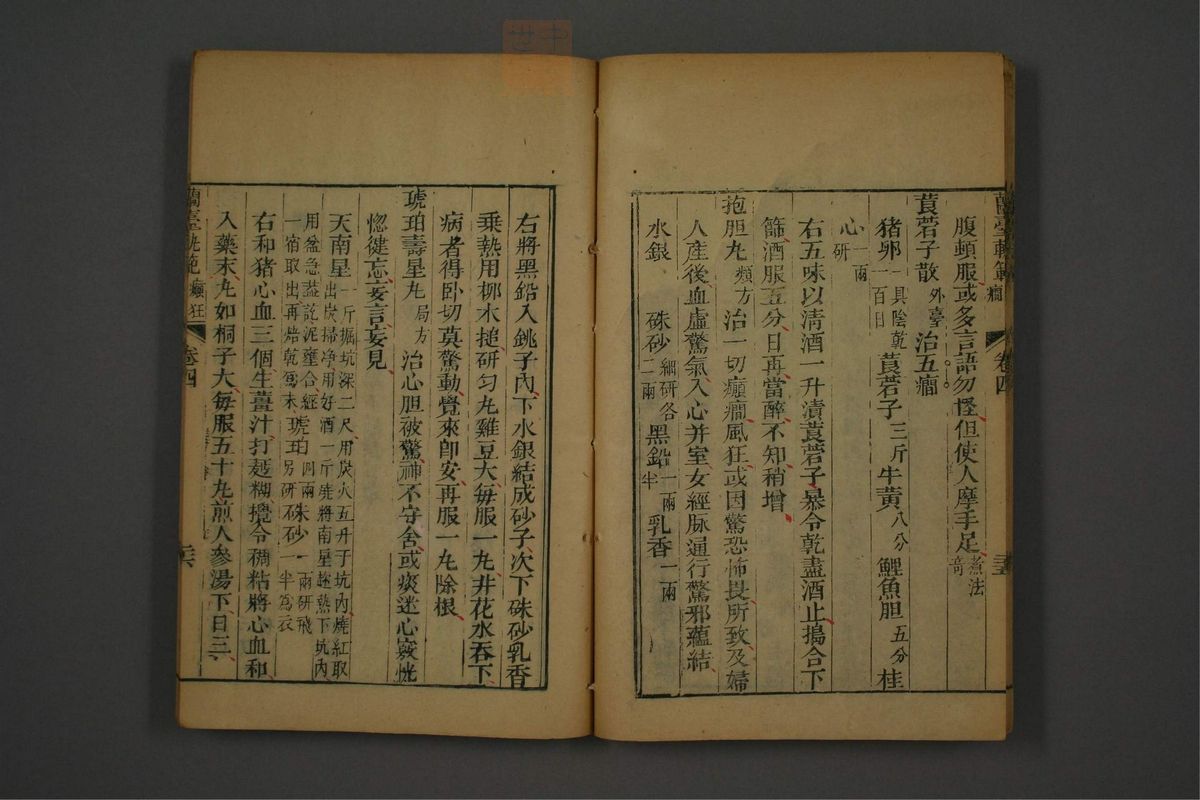 腹頓服或多言語勿怪但使人摩手足煮法奇
莨菪子散外臺治五癎
豬卵一具陰乾百日莨菪子三斤牛黃八分鯉魚胆五分桂
心一兩研
右五味以清酒一升漬莨菪子暴令乾盡酒止搗合下
篩酒服五分日再當醉不知稍增
抱胆丸類方治一切癲癎風狂或因驚恐怖畏所致及婦
人産後血虛驚氣入心并室女經脉通行驚邪蘊結
水銀硃砂細研各二兩黑鉛一兩半乳香一兩
蘭臺軌範癲
卷四
右將黑鉛入銚子內下水銀結成砂子次下硃砂乳香
乘熱用柳木搥研勻丸雞豆大每服一丸井花水吞下
病者得卧切莫驚動覺來即安再服一丸除根
琥珀壽星丸局方治心胆被驚神不守舍或痰迷心竅恍
惚健忘妄言妄見
天南星一斤掘坑深二尺用炭火五斤于坑內燒紅取出炭掃净用好酒一斤澆將南星趂熱下坑內
用盆急蓋訖泥壅合經一宿取出再焙乾為末琥珀四兩另研硃砂一兩研飛一半為衣
右和豬心血三個生薑汁打麪糊攪令稠粘將心血和
入藥末丸如桐子大每服五十丸煎人參湯下日三
蘭臺軌範癲狂
卷四